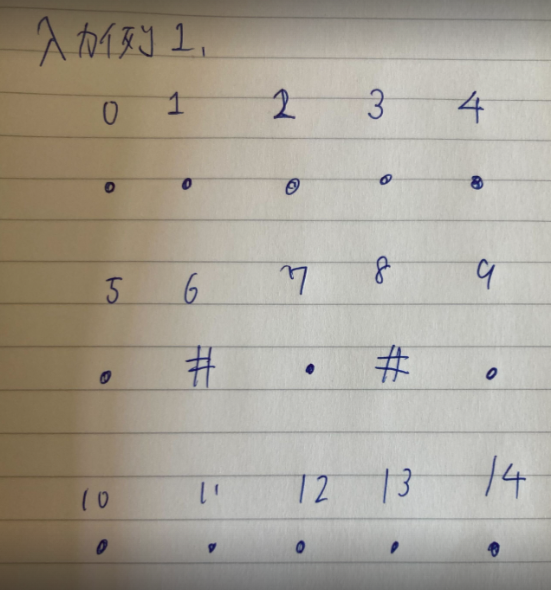 入力例1.
0 1 2 3 4
. . . . .
5 6 7 8 9
. # . # .
10 11 12 13 14
. . . . .